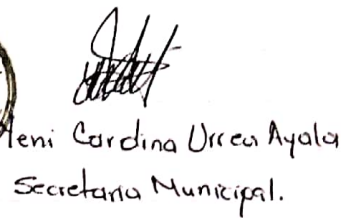 Cardina Urrea Ayala
Secretaria Municipal.